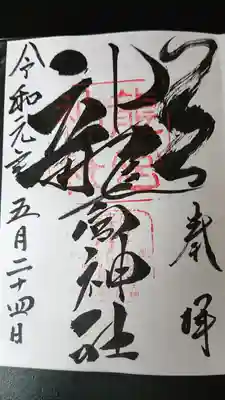 奉拝
龍宮神社
令和元年五月二十四日